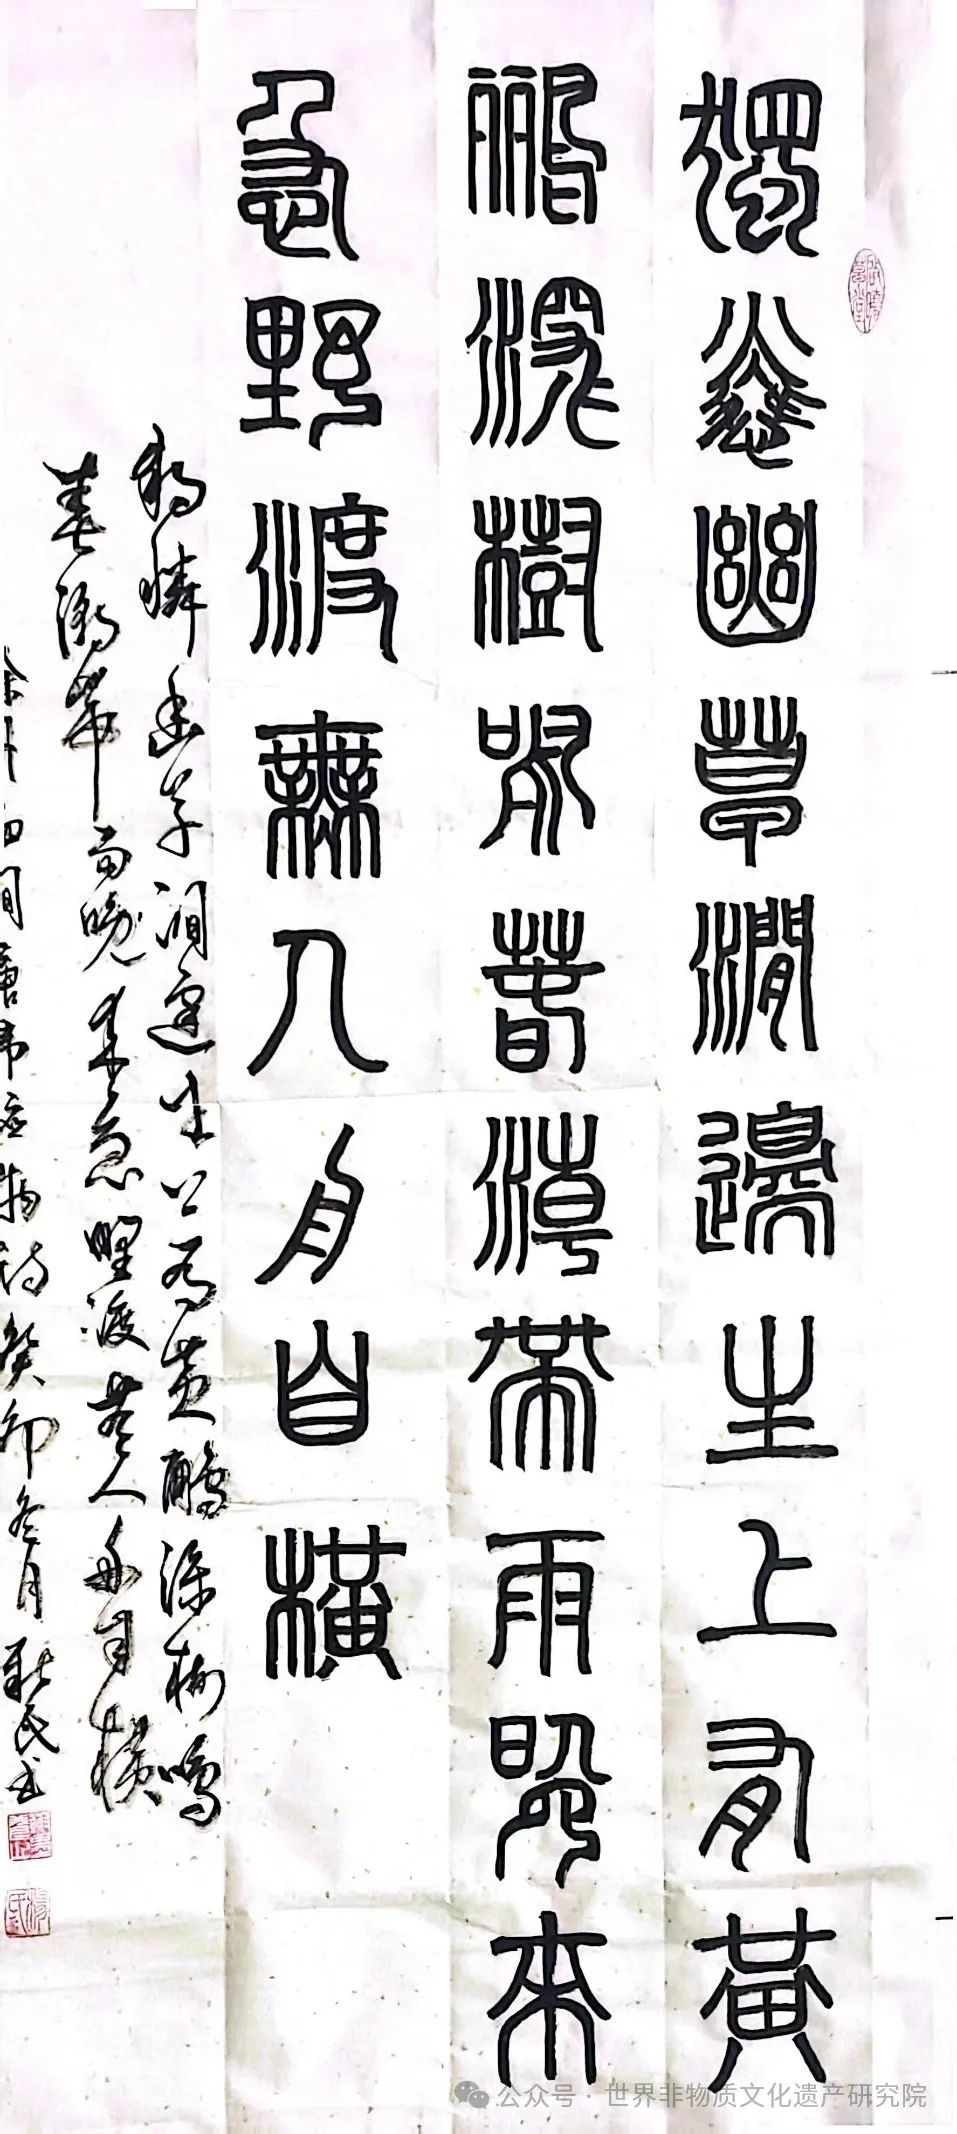 獨憐幽草澗邊生上有黃
鸝深樹鳴春潮帶雨晚來
急野渡無人舟自橫
獨憐幽草澗邊生上有黃鸝深樹鳴
春潮帶雨晚來急野渡無人舟自橫
滁州西澗唐韋應物詩癸卯冬月民书
公众号 · 世界非物质文化遗产研究院